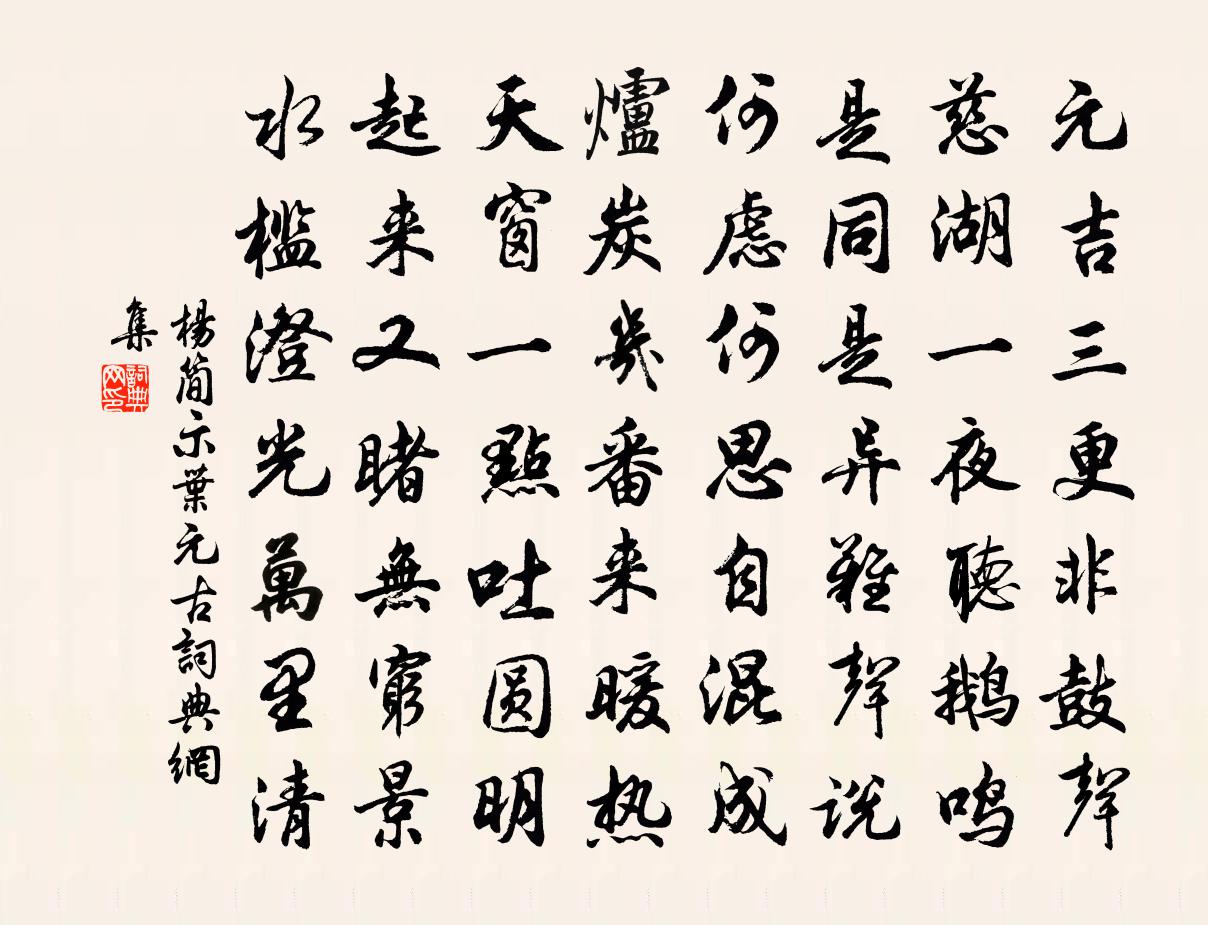 元吉三更非鼓聲
慈湖一夜聽鹅鸣
是同是异難聲説
何慮何思自混成
爐炭幾番来暖热
天窗一點吐圆明
起来又睹無窮景
水檻澄光萬里清
楊简示葉元古詞典網
集
詞典網印